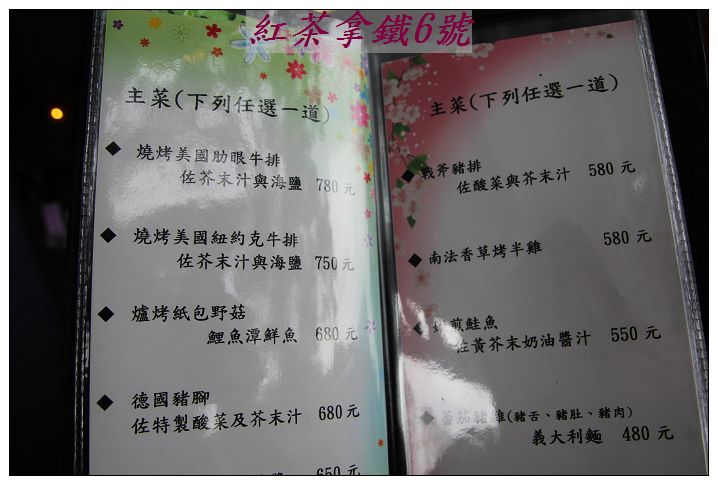 紅茶拿鐵6號
主菜(下列任選一道)
◆ 燒烤美國肋眼牛排
佐芥末汁與海鹽 780元
◆ 燒烤美國紐約克牛排
佐芥末汁與海鹽 750元
◆ 爐烤紙包野菇
鯉魚潭鮮魚 680元
◆ 德國豬腳
佐特製酸菜及芥末汁 680元
650元
主菜(下列任選一道)
◆ 戰斧豬排
佐酸菜與芥末汁 580元
◆ 南法香草烤半雞 580元
◆ 煎鮭魚
佐黃芥末奶油醬汁 550元
◆ 蕃茄豬(豬舌、豬肚、豬肉)
義大利麵 480元